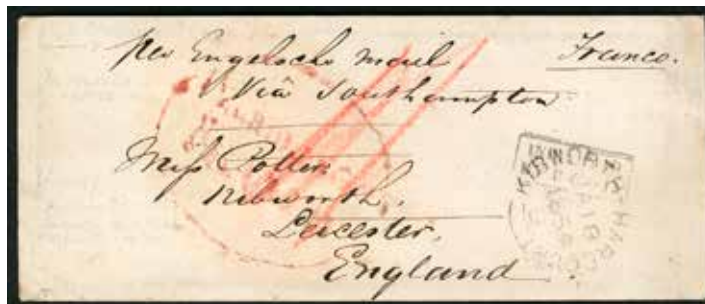 Per Engelsche mail Franco.
Via Southampton
Miss Potter
Kibworth,
Leicester,
England
KIBWORTH HARCO